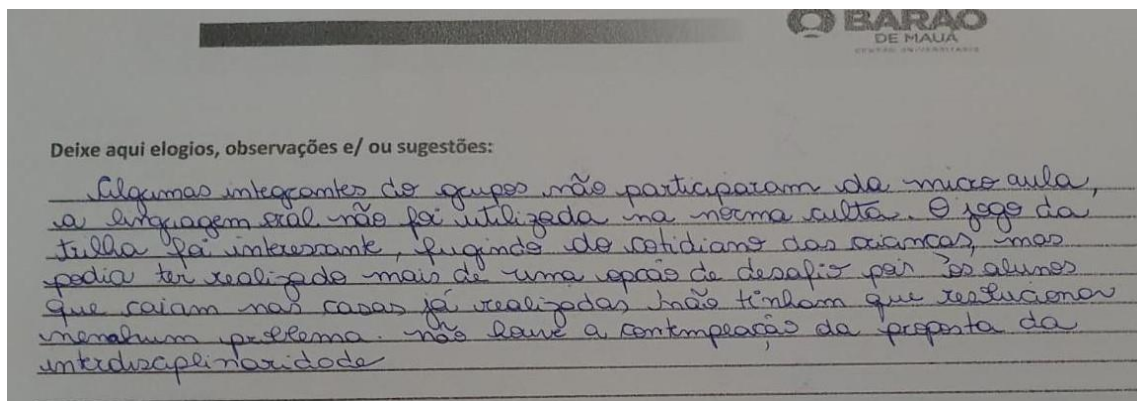 BARÃO
DE MAUÁ
CENTRO UNIVERSITÁRIO
Deixe aqui elogios, observações e/ ou sugestões:
Algumas integrantes do grupos não participaram da micro aula,
a linguagem oral não foi utilizada na norma culta. O jogo da
trilha foi interessante, fugindo do cotidiano das crianças, mas
podia ter realizado mais de uma opcão de desafio pois os alunos
que caiam nas casas já realizadas não tinham que resolucionar
nenahum problema. não houve a contemplação da proposta da
interdisciplinaridade